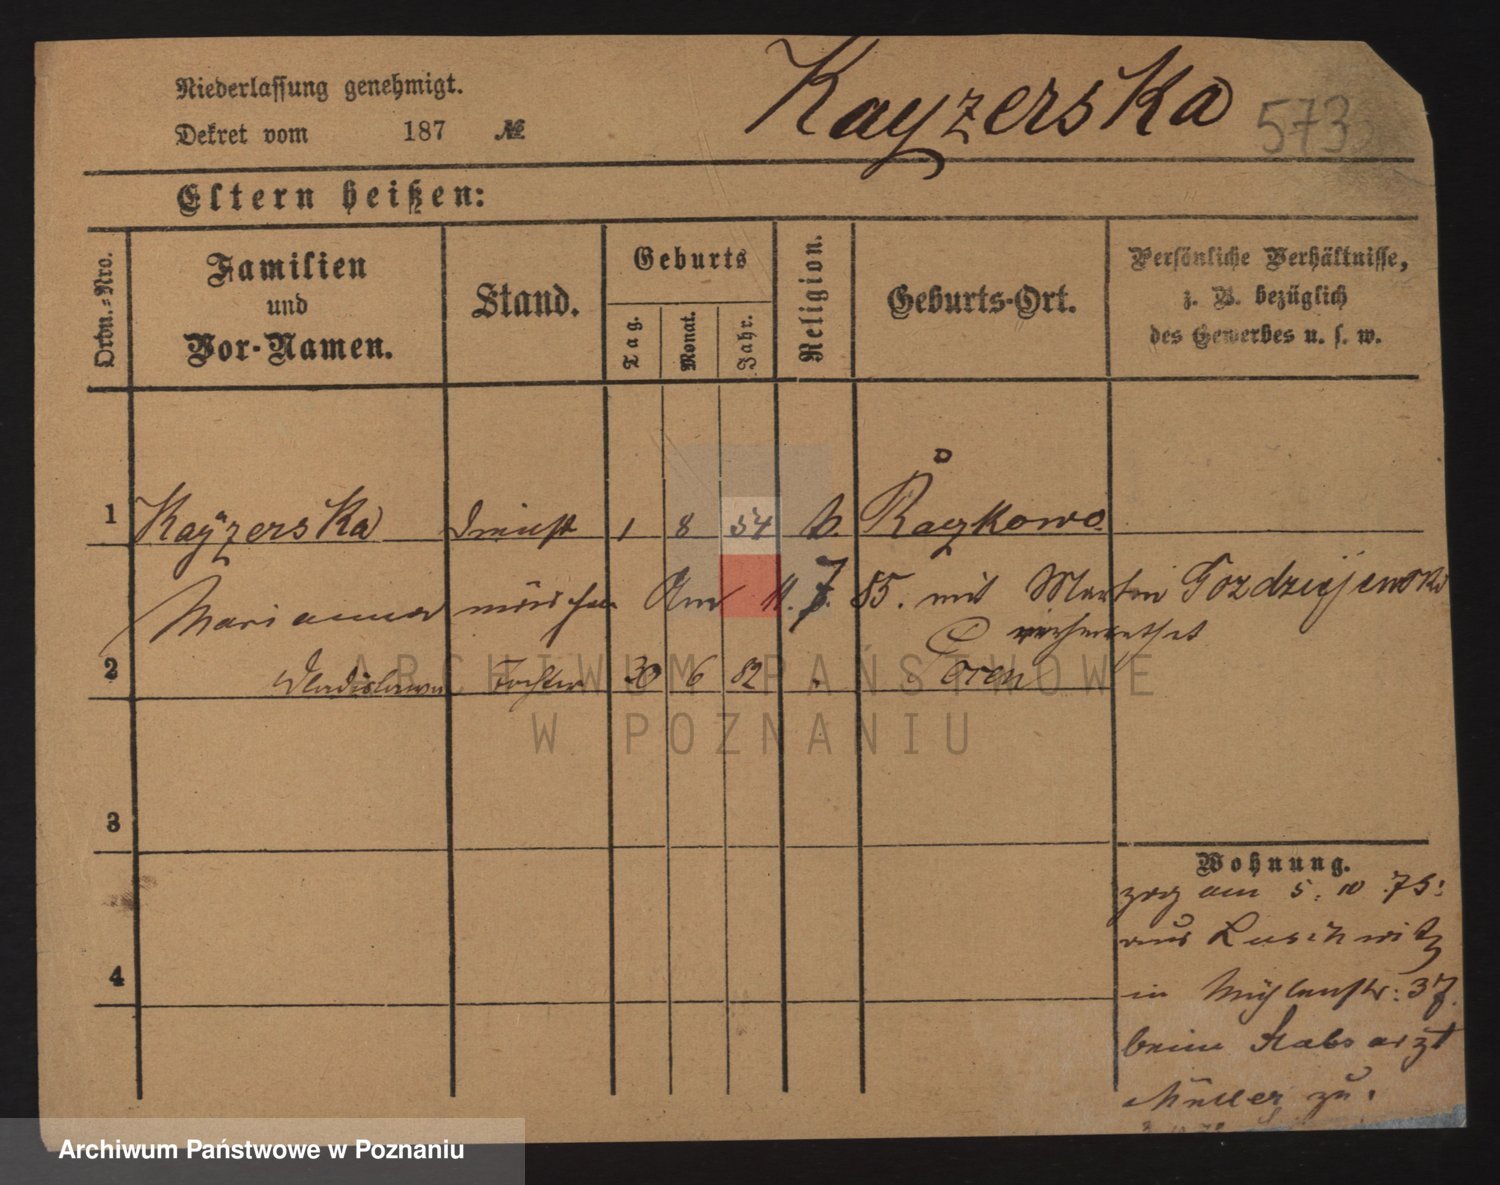 Niederlassung genehmigt.
Dekret vom 187 №
Kayzerska
573
Eltern heißen:
Ordn.-Nro.
Familien
und
Vor-Namen.
Stand.
Geburts
Tag.
Monat.
Jahr.
Religion.
Geburts-Ort.
Persönliche Verhältnisse,
z. B. bezüglich
des Gewerbes u. s. w.
1 Kayzerska Dienst 1 8 54 Raykowo
Marianna mädchen Am 11. 7. 85. mit Martin Gozdziejewski
verheirathet
2 Wladislawa Tochter 30 6 82 Posen
3
4
Wohnung.
zog am 5. 10. 75.
aus Luschwitz
in Mühlenstr: 37.
beim Stabsarzt
Müller zu.
ARCHIWUM PAŃSTWOWE
W POZNANIU
Archiwum Państwowe w Poznaniu